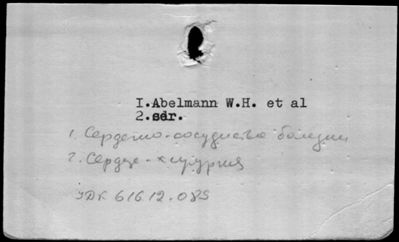 I.Abelmann W.H. et al
2.sdr.
1. Сердечно-сосудисто болезни
2. Сердце-хирургия
УДК 616.12.089